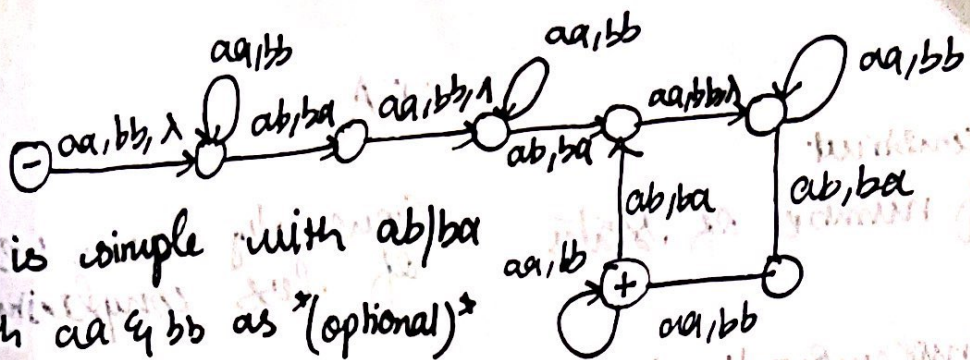 aa,bb
aa,bb
aa,bb
- aa,bb,λ ab,ba aa,bb,λ ab,ba aa,bb,λ
ab,ba
ab,ba
is simple with ab/ba
aa,bb
+ aa,bb
aa & bb as *(optional)*